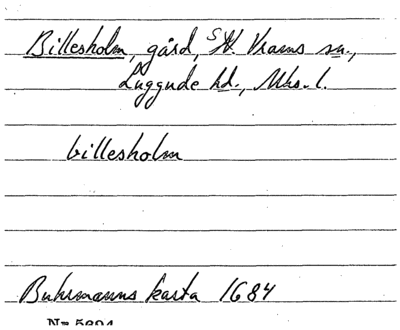 Billesholm, gård, N. Vrams sn.,
Luggude hd., Mhs. l.
billesholm
Buhrmanns karta 1684
Nr 5694